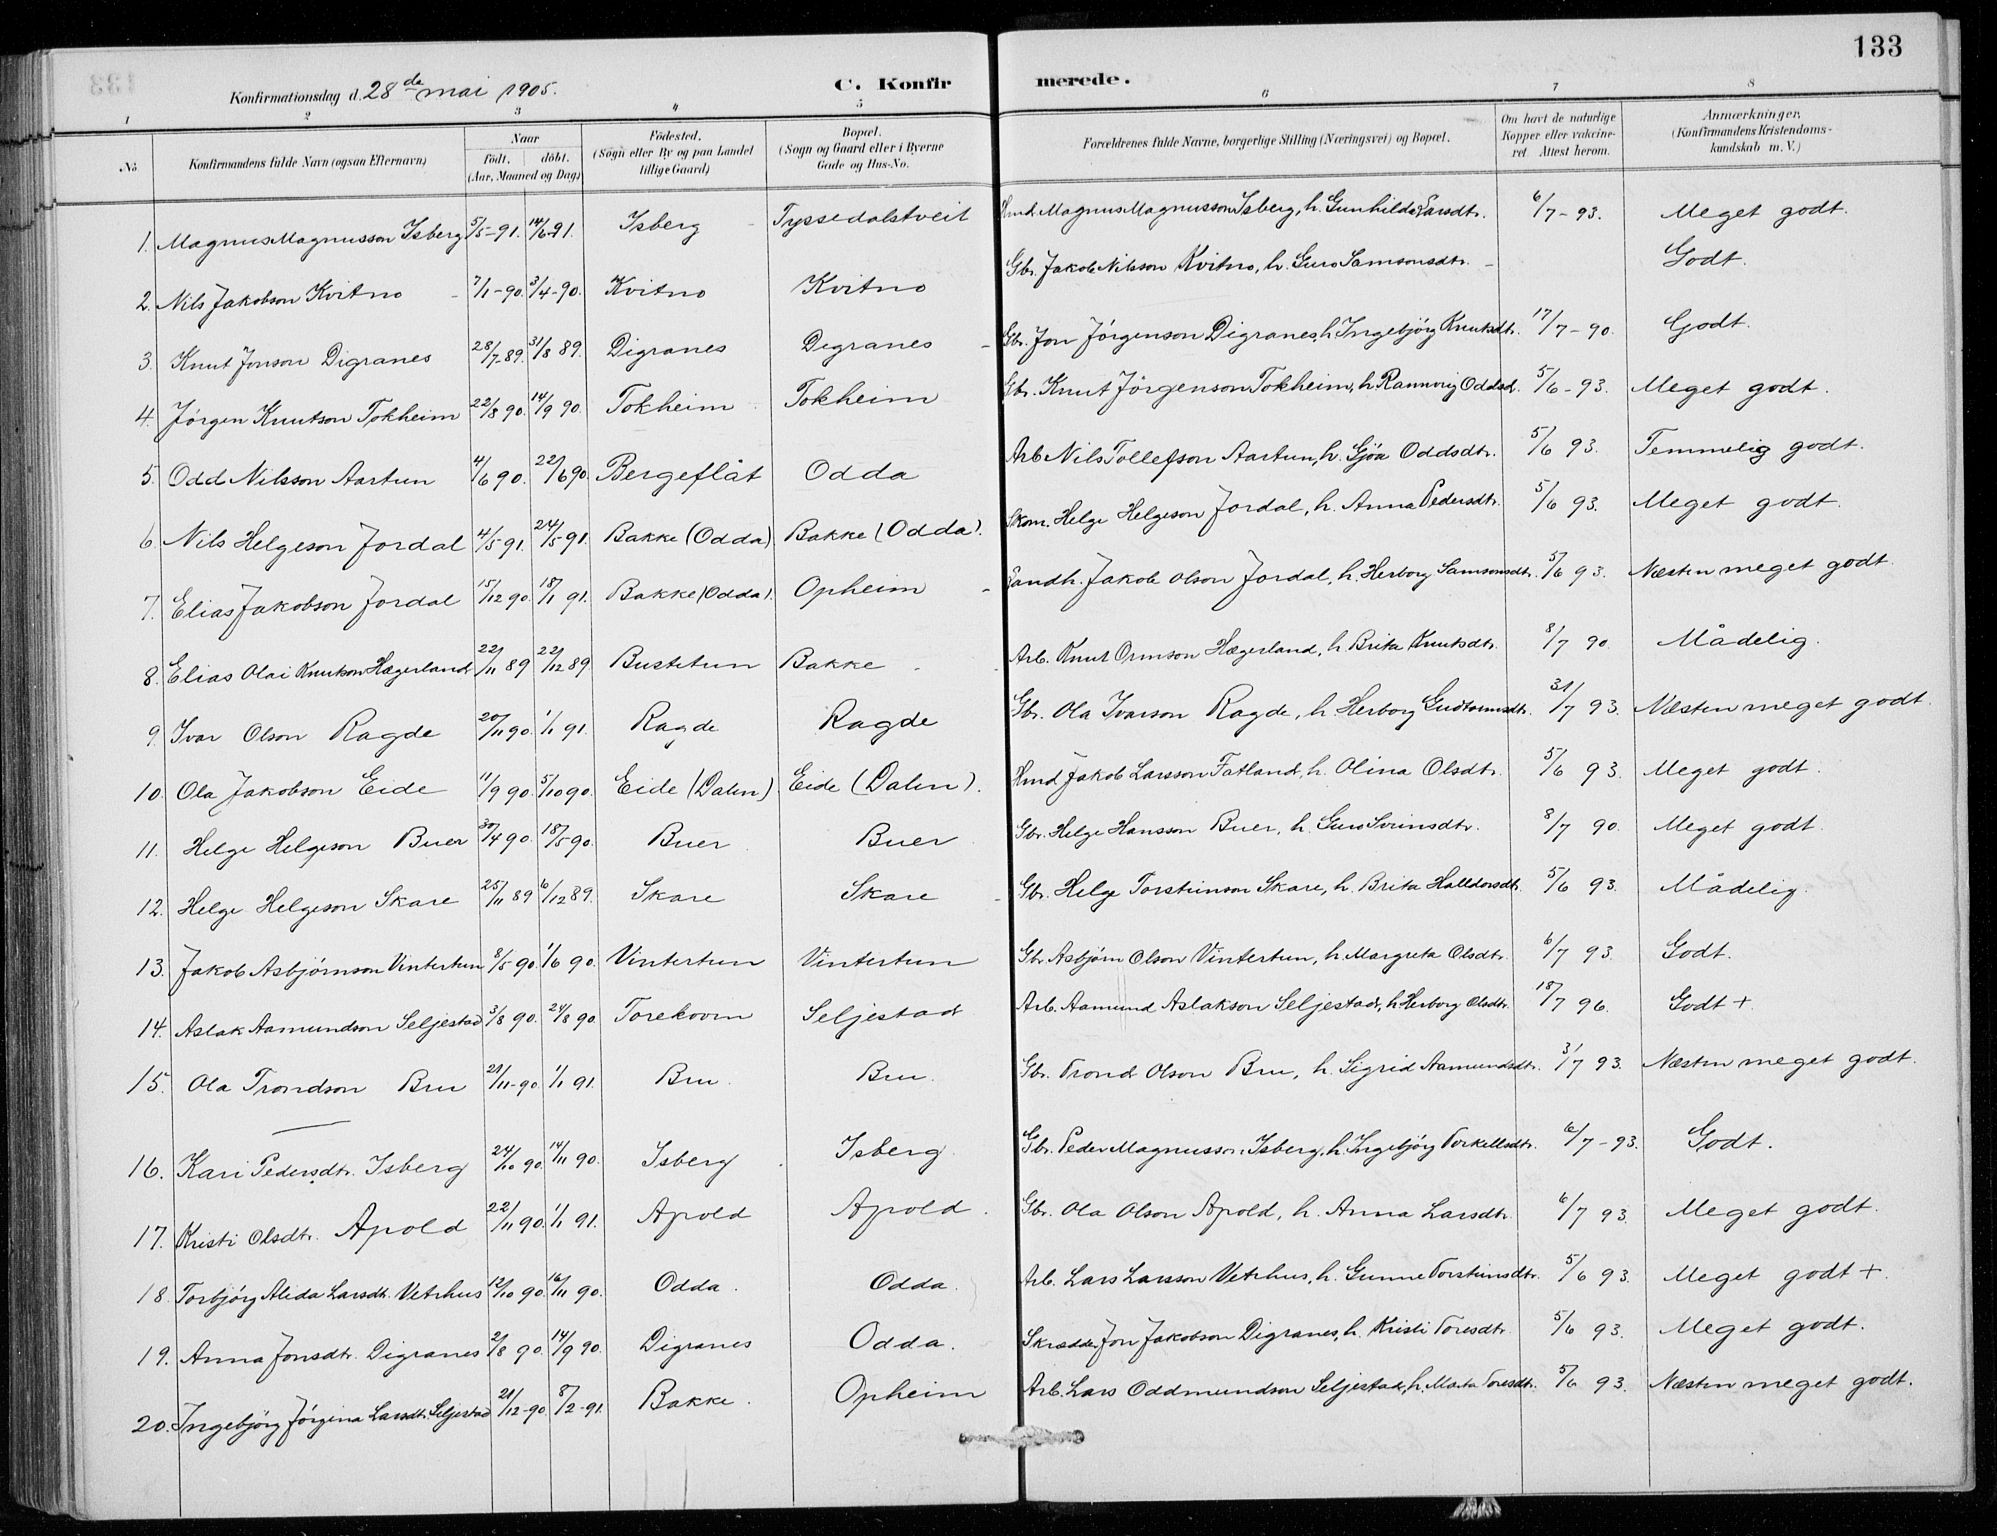 133
Konfirmationsdag d. 28de mai 1905.
C. Konfirmerede.
1 2 3 4 5 6 7 8
No Konfirmandens fulde Navn (ogsaa Efternavn) Naar født. døbt. (Aar, Maaned og Dag) Fødested. (Sogn eller By og paa Landet tillige Gaard) Bopæl. (Sogn og Gaard eller i Byerne Gade og Hus-No. Forældrenes fulde Navne, borgerlige Stilling (Næringsvei) og Bopæl. Om havt de naturlige Kopper eller vaccineret Attest herom. Anmærkninger. (Konfirmandens Kristendomskundskab m. V.)
1. Magnus Magnusson Isberg 5/5-91. 14/6-91. Isberg Tyssedalstveit Hmd. Magnus Magnusson Isberg, h. Gunhilda Larsdtr. 6/7-93. Meget godt.
2. Nils Jakobson Kvitno 7/1-90. 3/4-90. Kvitno Kvitno Gbr. Jakob Nilsson Kvitno, h. Guro Samsonsdtr. - Godt.
3. Knut Jonson Digranes 28/7-89. 31/8 89. Digranes Digranes Gbr. Jon Jørgenson Digranes, h. Ingebjørg Knutsdtr. 17/7-90. Godt.
4. Jørgen Knutson Tokheim 22/8 90. 14/9 90. Tokheim Tokheim Gbr. Knut Jørgenson Tokheim, h. Rannveig Oddsd. 5/6-93. Meget godt.
5. Odd Nilsson Aartun 4/6 90. 22/6 90. Bergeflåt Odda Arb. Nils Tollefson Aartun, h. Gjøa Oddsdtr. 5/6 93. Temmelig godt.
6. Nils Helgeson Jordal 4/5-91. 24/5-91. Bakke (Odda) Bakke (Odda). Skom. Helge Helgeson Jordal, h. Anna Pedersdtr. 5/6 93. Meget godt.
7. Elias Jakobson Jordal 15/12 90. 18/1 91. Bakke (Odda). Opheim Landh. Jakob Olson Jordal, h. Herborg Samsonsdtr. 5/6 93. Næsten meget godt.
8. Elias Olai Knutson Hægerland 22/11 89 22/12 89 Bustetun Bakke Arb. Knut Ormson Hægerland, h. Brita Knutsdtr. 8/7 90. Mådelig.
9. Ivar Olson Ragde 20/11 90. 1/1 91. Ragde Ragde Gbr. Ola Ivarson Ragde, h. Herborg Gudtormsdtr. 31/7 93. Næsten meget godt.
10. Ola Jakobson Eide 11/9 90. 5/10 90. Eide (Dalen) Eide (Dalen). Hmd Jakob Larsson Fatland, h. Olina Olsdtr. 5/6 93. Meget godt.
11. Helge Helgeson Buer 30/4 90. 18/5 90. Buer Buer Gbr. Helge Hansson Buer, h. Guro Sveinsdtr. 8/7 90. Meget godt.
12. Helge Helgeson Skare 25/11 89 6/12 89. Skare Skare Gbr. Helge Torsteinson Skare, h. Brita Halldorsdtr. 5/6 93. Mådelig.
13. Jakob Asbjørnson Vintertun 8/5 90. 1/6 90. Vintertun Vintertun Gbr. Asbjørn Olson Vintertun, h. Margreta Olsdtr. 6/7 93. Godt.
14. Aslak Aamundson Seljestad 3/8 90. 24/8 90. Seljestad Arb. Aamund Aslakson Seljestad, h. Herborg Olsdtr. 18/7 96. Godt +.
15. Ola Trondson Bru 21/11-90. 1/1 91. Bru. Bru. Gbr. Trond Olson Bru, h. Sigrid Aamundsdtr. 31/7 93. Næsten meget godt.
16. Kari Pedersdtr. Isberg 24/10 90. 14/11 90. Isberg Isberg. Gbr. Peder Magnusson Isberg, h. Ingebjørg Torkellsdtr. 6/7-93. Godt.
17. Kristi Olsdtr. Apold 22/11 90. 1/1 91. Apold Apold. Gbr. Ola Olson Apold, h. Anna Larsdtr. 6/7 93. Meget godt.
18. Torbjørg Alida Larsdtr. Vetrhus 12/10 90. 16/11 90. Odda. Odda. Arb. Lars Larsson Vetrhus, h. Gunne Torsteinsdtr. 5/6 93. Meget godt +.
19. Anna Jonsdtr. Digranes 2/8 90. 14/9 90. Digranes Odda. Skrædder Jon Jakobson Digranes, h. Kristi Toresdtr. 5/6 93. Meget godt.
20. Ingebjørg Jørgina Larsdtr. Seljestad 21/12-90. 8/2-91. Bakke. Opheim Arb. Lars Oddmundson Seljestad, h. Marta Toresdtr. 5/6 93. Næsten meget godt.